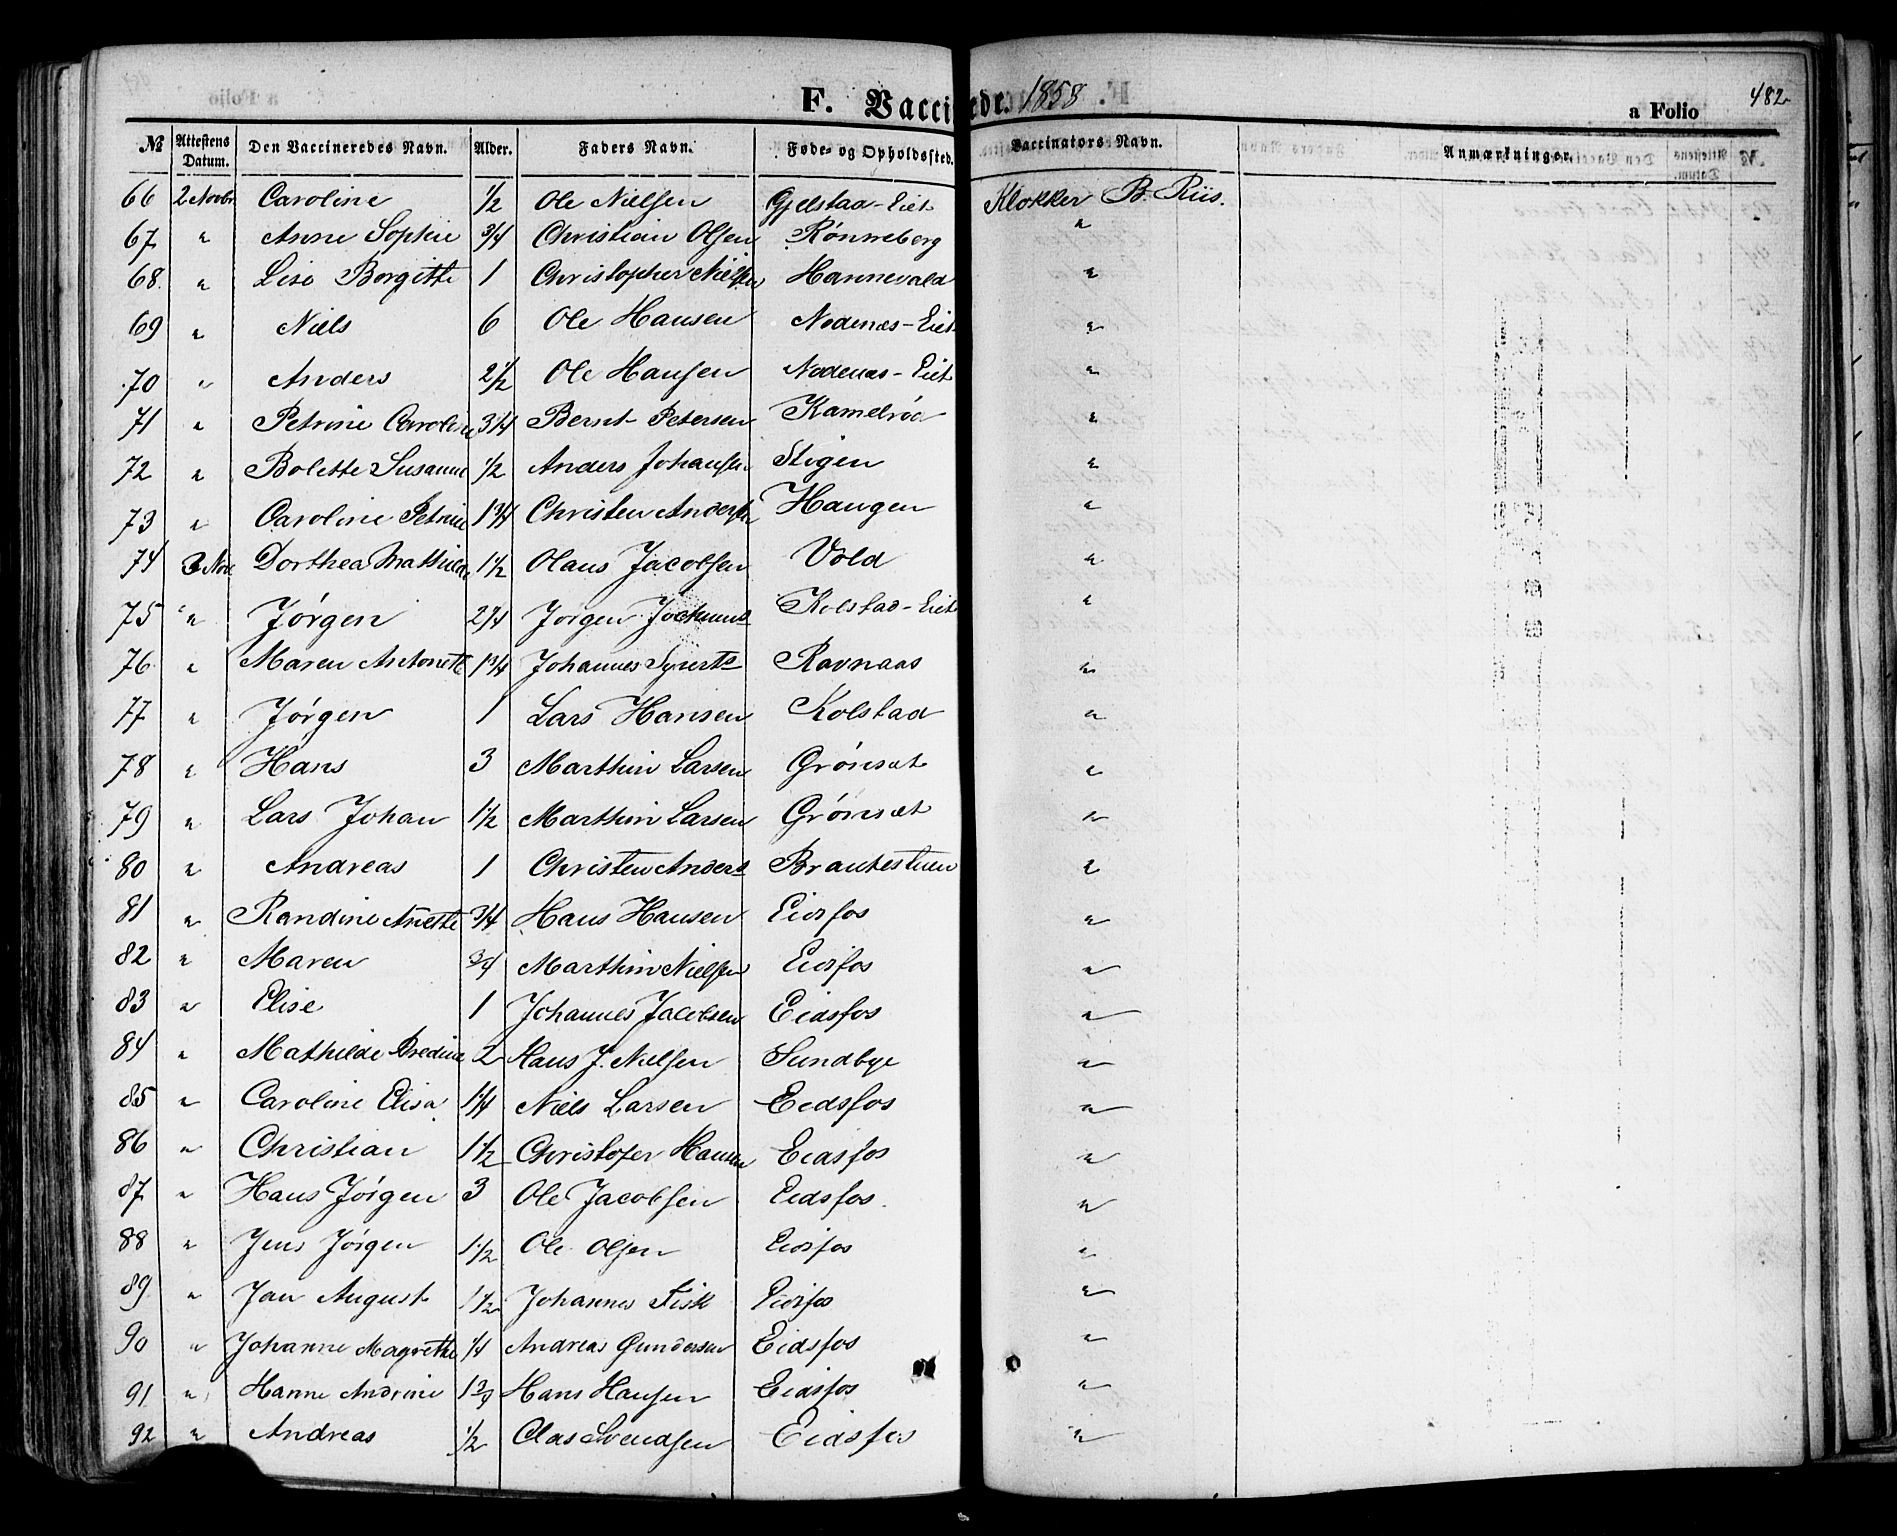 F. Vaccinerede. 1858 a Folio 482
№ Attestens Datum. Den Vaccineredes Navn. Alder. Faders Navn. Føde- og Opholdssted. Vaccinators Navn. Anmærkninger.
66 2 Novbr Caroline 1/2 Ole Nielsen Gjelstad-Eiet Klokker B. Riis.
67 " Anne Sophie 3/4 Christian Olsen Rønneberg "
68. " Lise Borgitte 1 Christopher Nielsen Hannevald "
69 " Niels 6 Ole Hansen Nodenæs-Eiet "
70 " Anders 2 1/2 Ole Hansen Nodenæs-Eiet "
71 " Petrine Caroline 3/4 Bernt Petersen Kamelrød "
72 " Bolette Susanne 1/2 Anders Johansen Stigen "
73 " Caroline Petrine 1 3/4 Christen Andersen Haugen "
74 3 Nov Dorthea Mathilde 1 1/2 Olaus Jacobsen Vold "
75 " Jørgen 2 1/4 Jørgen Jochums Kolstad-Eiet "
76 " Maren Antonette 1 3/4 Johannes Syverts Ravnaas "
77 " Jørgen 1 Lars Hansen Kolstad "
78 " Hans 3 Marthin Larsen Grønsæt "
79 " Lars Johan 1 1/2 Marthin Larsen Grønsæt "
80 " Andreas 1 Christen Anders Brautestuen "
81 " Randine Anette 3/4 Hans Hansen Eidsfos "
82 " Maren 3/4 Marthin Nielsen Eidsfos "
83 " Elise 1 Johannes Jacobsen Eidsfos "
84 " Mathilde Bredine 2 Hans J. Nielsen Sundbye "
85 " Caroline Elisa 1 1/4 Niels Larsen Eidsfos "
86 " Christian 1 1/2 Christofer Hansen Eidsfos "
87 " Hans Jørgen 3 Ole Jacobsen Eidsfos. "
88 " Jens Jørgen 1 1/2 Ole Olsen Eidsfos "
89 " Jan August 1 1/2 Johannes Fisk Eidsfos "
90 " Johanne Magrethe 1/4 Andreas Gundersen Eidsfos "
91 " Hanne Andrine 1 3/4 Hans Hansen Eidsfos "
92 " Andreas 1/2 Clas Svendsen Eidsfos "